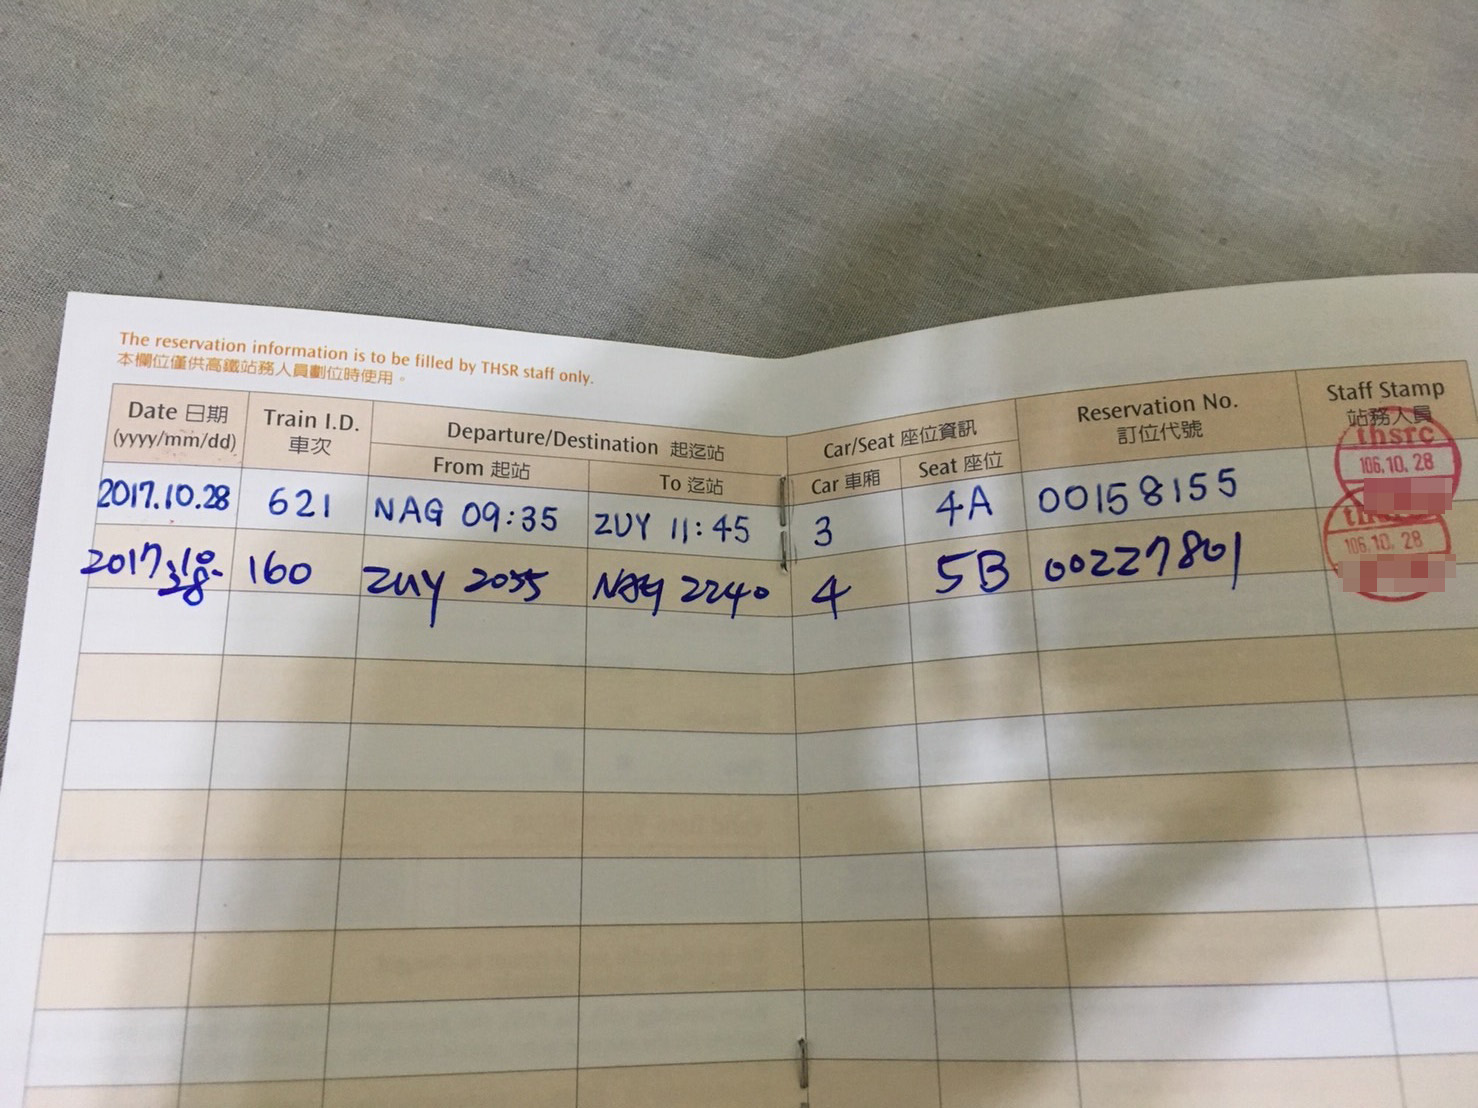 The reservation information is to be filled by THSR staff only.
本欄位僅供高鐵站務人員劃位時使用。
Date 日期
(yyyy/mm/dd)
Train I.D.
車次
Departure/Destination 起迄站
From 起站
To 迄站
Car/Seat 座位資訊
Car 車廂
Seat 座位
Reservation No.
訂位代號
Staff Stamp
站務人員
thsrc
106.10.28
2017.10.28 621 NAG 09:35 ZUY 11:45 3 4A 00158155
2017.10.28 160 ZUY 2055 NAG 2240 4 5B 00227801
106.10.28